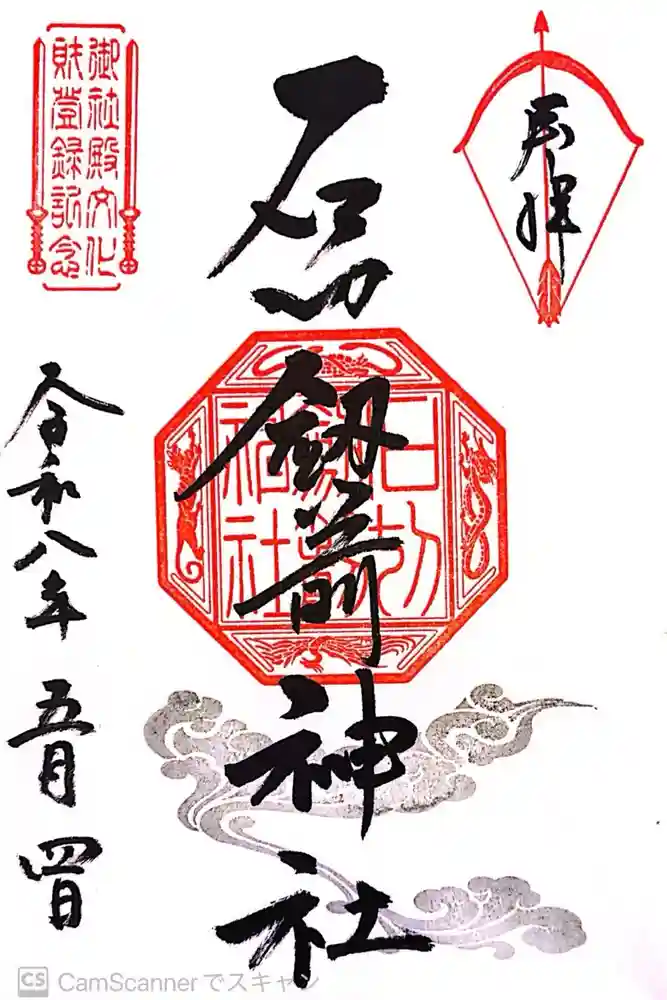 奉拝
石切劔箭神社
石切
劔箭
神社
御社殿文化
財登録記念
令和八年 五月 四日
CS CamScannerでスキャン